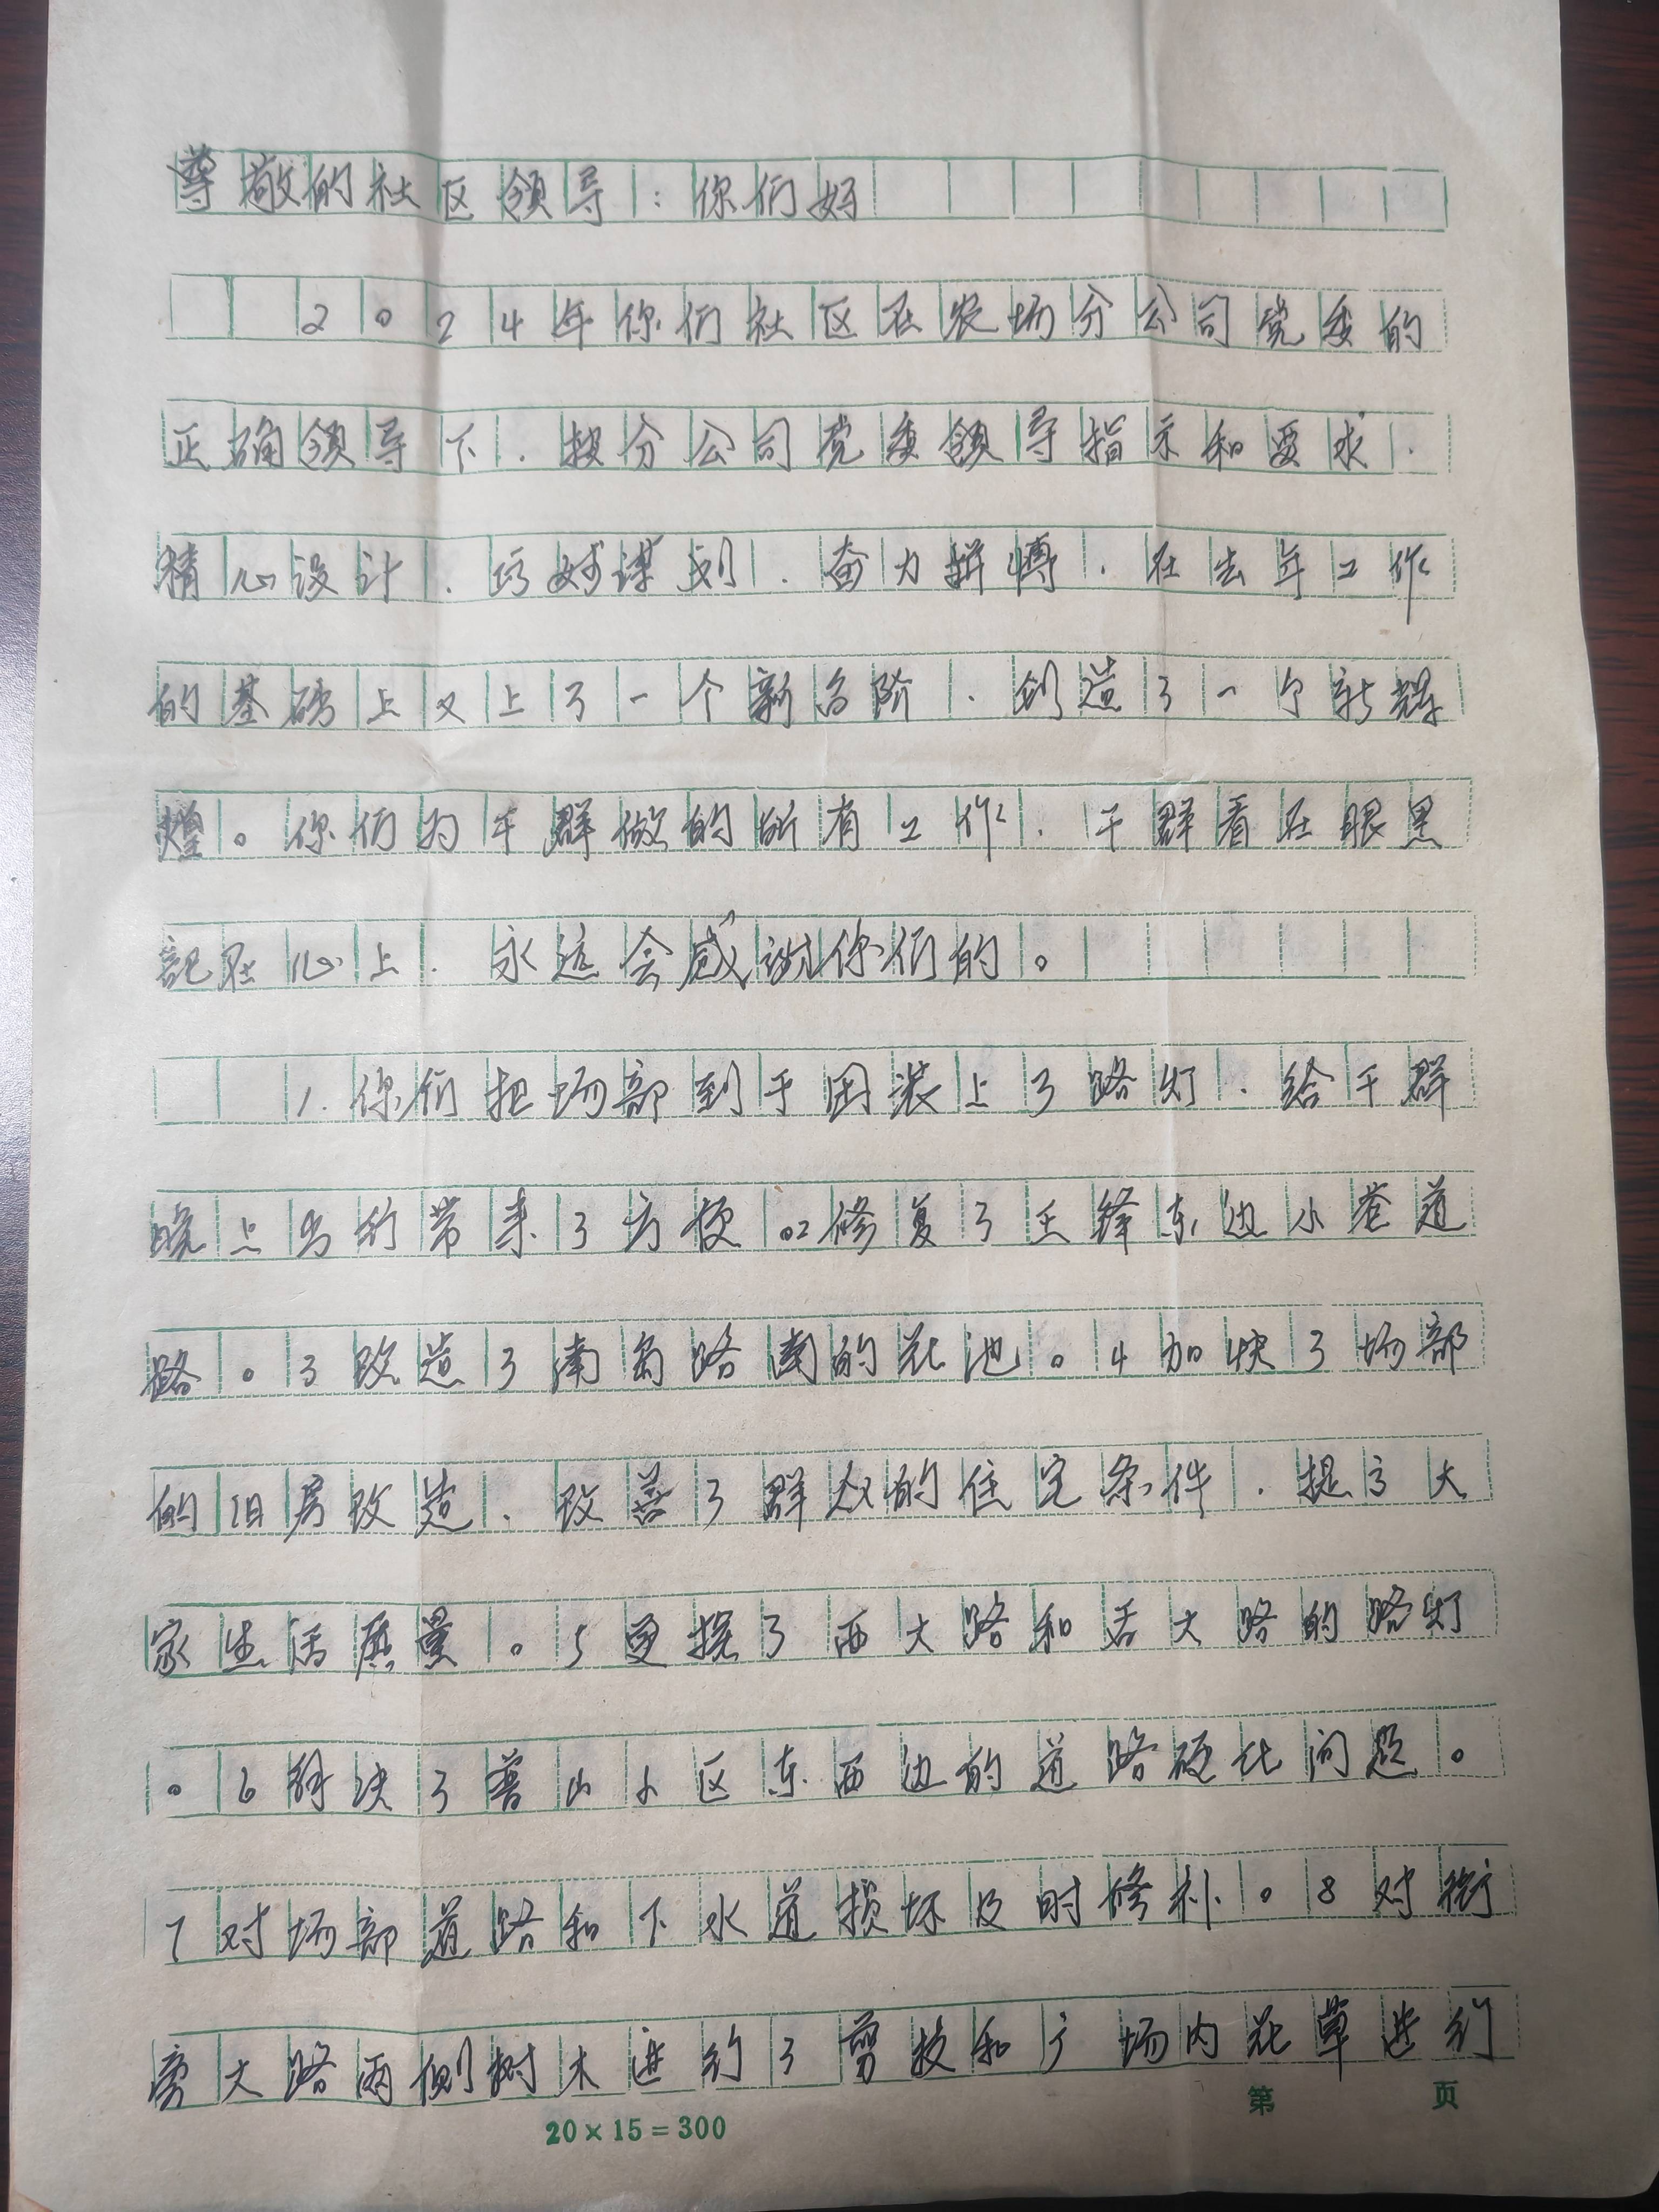 尊敬的社区领导：你们好
2024年你们社区在农场分公司党委的
正确领导下.按分公司党委领导指示和要求.
精心设计.巧妙谋划.奋力拼博.在去年工作
的基础上又上了一个新台阶.创造了一个新辉
煌。你们为干群做的所有工作.干群看在眼里
記在心上.永远会感谢你们的。
1.你们把场部到于困装上了路灯.给干群
晚上出行带来了方便。2修复了王锋东边小巷道
路。3改造了南岛路南的花池。4加快了场部
的旧房改造.改善了群众的住宅条件.提高大
家生活质量。5更换了西大路和大路的路灯
。6解决了普山小区东西边的道路硬化问题。
7对场部道路和下水道损坏及时修补。8对
大路两侧树木进行了剪枝和广场内花草进行
20×15=300
第 页